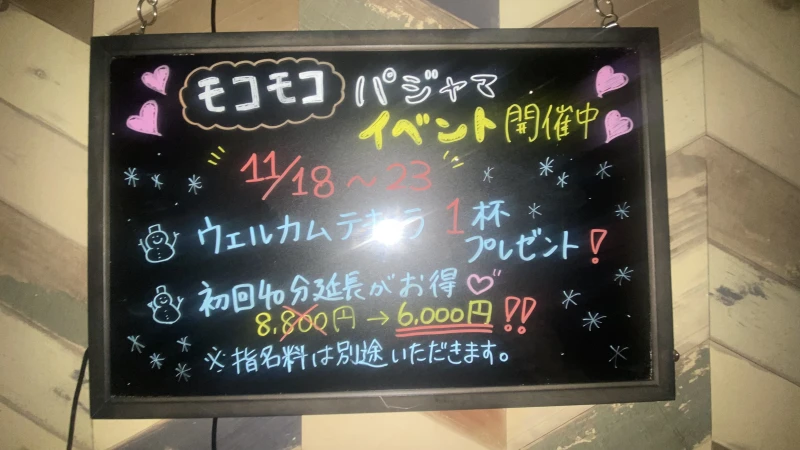 モコモコ パジャマ
イベント開催中
11/18〜23
ウェルカムテキーラ 1杯
プレゼント!
初回40分延長がお得
8,800円→6,000円!!
※指名料は別途いただきます。